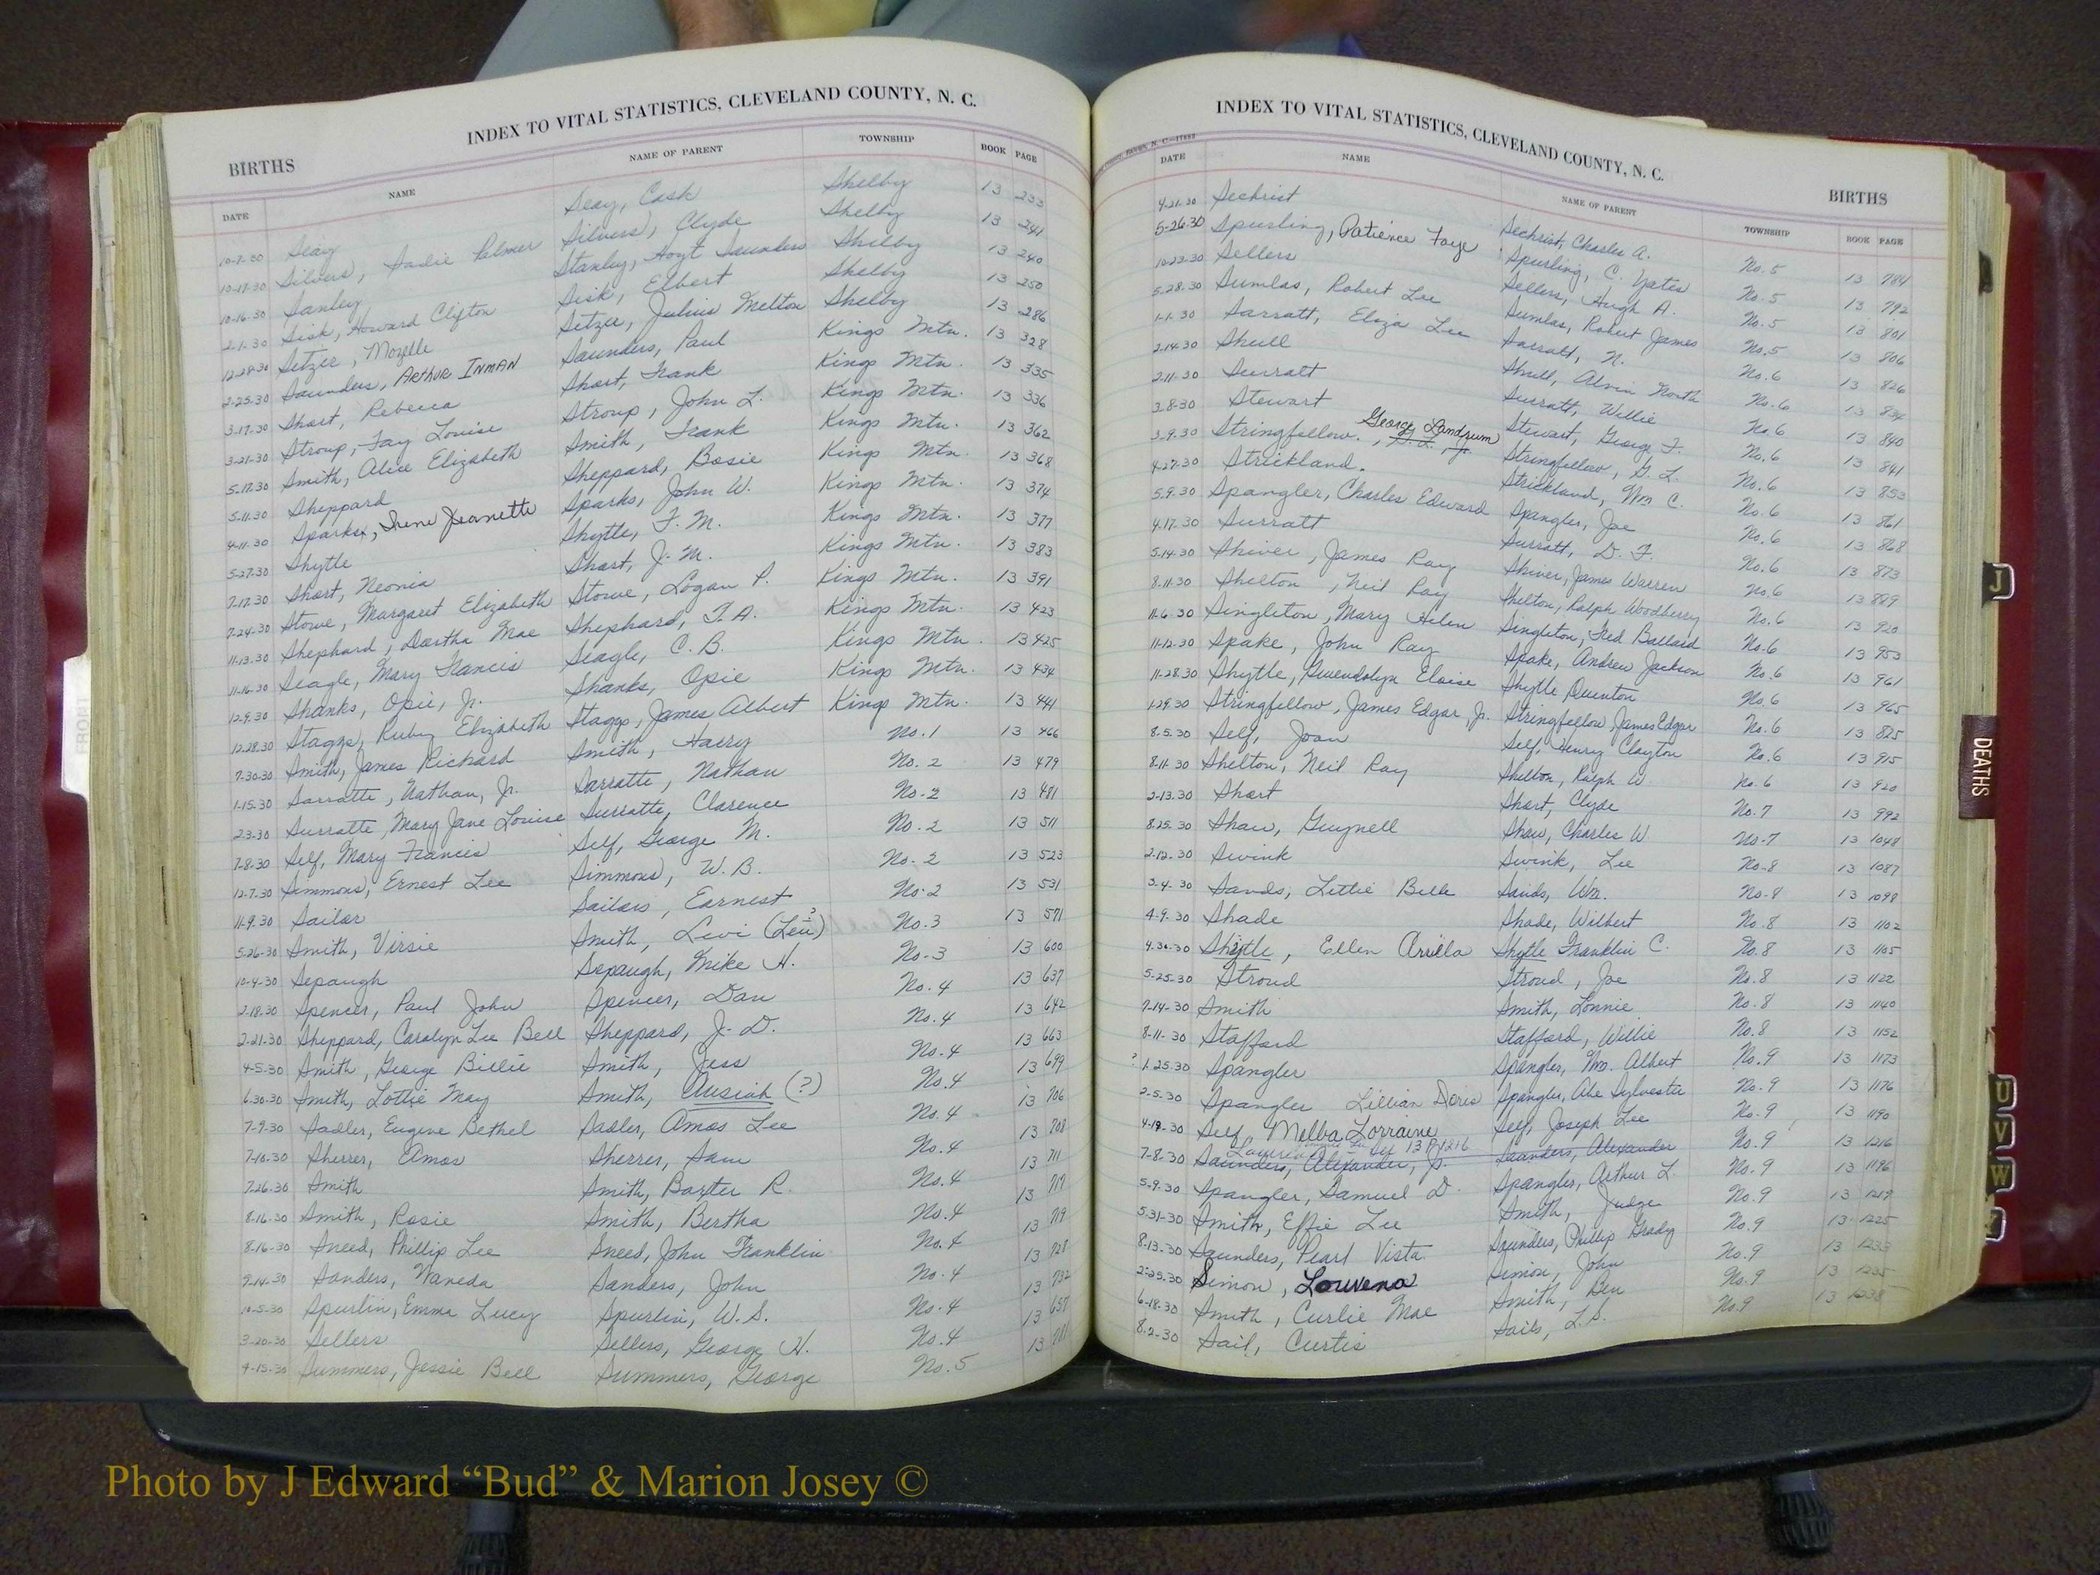 INDEX TO VITAL STATISTICS, CLEVELAND COUNTY, N. C.
BIRTHS
DATE NAME NAME OF PARENT TOWNSHIP BOOK PAGE
10-7-30 Seay Seay, Cash Shelby 13 233
10-17-30 Silvers, Sadie Palmer Silvers, Clyde Shelby 13 241
10-16-30 Stanley, Hoyt Saunders Shelby 13 240
2-1-30 Sisk, Howard Clifton Sisk, Elbert Shelby 13 250
12-28-30 Setzer, Mozelle Setzer, Julius Melton Shelby 13 286
2-25-30 Saunders, Arthur Inman Saunders, Paul Kings Mtn. 13 328
3-17-30 Short, Rebecca Short, Frank Kings Mtn. 13 335
3-21-30 Stroup, Fay Louise Stroup, John L. Kings Mtn. 13 336
5-17-30 Smith, Alice Elizabeth Smith, Frank Kings Mtn. 13 362
5-11-30 Sheppard Sheppard, Bosie Kings Mtn. 13 368
4-11-30 Sparks, Irene Jeanette Sparks, John W. Kings Mtn. 13 374
5-27-30 Shytle Shytle, F. M. Kings Mtn. 13 377
7-17-30 Short, Neonia Short, J. M. Kings Mtn. 13 383
7-24-30 Stowe, Margaret Elizabeth Stowe, Logan P. Kings Mtn. 13 391
11-13-30 Shephard, Dortha Mae Shephard, T. A. Kings Mtn. 13 423
11-16-30 Seagle, Mary Francis Seagle, C. B. Kings Mtn. 13 425
12-9-30 Shanks, Opie, Jr. Shanks, Opie Kings Mtn. 13 434
12-28-30 Staggs, Ruby Elizabeth Staggs, James Albert Kings Mtn. 13 441
7-30-30 Smith, James Richard Smith, Harry No. 1 13 466
1-15-30 Sarratte, Nathan, Jr. Sarratte, Nathan No. 2 13 479
2-3-30 Surratte, Mary Jane Louise Surratte, Clarence No. 2 13 481
7-8-30 Self, Mary Francis Self, George M. No. 2 13 511
12-7-30 Simmons, Ernest Lee Simmons, W. B. No. 2 13 523
11-9-30 Sailor Sailors, Earnest No. 2 13 531
5-26-30 Smith, Virsie Smith, Levi (Leu?) No. 3 13 571
10-4-30 Sepaugh Sepaugh, Mike H. No. 3 13 600
2-18-30 Spencer, Paul John Spencer, Dan No. 4 13 637
2-21-30 Sheppard, Carolyn Lee Bell Sheppard, J. D. No. 4 13 642
4-5-30 Smith, George Billie Smith, Jess No. 4 13 663
6-30-30 Smith, Lottie May Smith, Ausiah (?) No. 4 13 699
7-9-30 Sadler, Eugene Bethel Sadler, Amos Lee No. 4 13 706
7-10-30 Sherrer, Amos Sherrer, Sam No. 4 13 708
7-26-30 Smith Smith, Baxter R. No. 4 13 711
8-16-30 Smith, Rosie Smith, Bertha No. 4 13 719
8-16-30 Sneed, Phillip Lee Sneed, John Franklin No. 4 13 719
9-14-30 Sanders, Waneda Sanders, John No. 4 13 728
10-5-30 Spurlin, Emma Lucy Spurlin, W. S. No. 4 13 732
3-20-30 Sellers Sellers, George H. No. 4 13 657
4-15-30 Summers, Jessie Bell Summers, George No. 5 13 781
INDEX TO VITAL STATISTICS, CLEVELAND COUNTY, N. C.
BIRTHS
DATE NAME NAME OF PARENT TOWNSHIP BOOK PAGE
4-21-30 Sechrist Sechrist, Charles A. No. 5 13 784
5-26-30 Spurling, Patience Faye Spurling, C. Yates No. 5 13 792
10-23-30 Sellers Sellers, Hugh A. No. 5 13 801
5-28-30 Sumlas, Robert Lee Sumlas, Robert James No. 5 13 806
1-1-30 Sarratt, Eliza Lee Sarratt, N. No. 6 13 826
2-14-30 Shull Shull, Alvin North No. 6 13 834
2-11-30 Surratt Surratt, Willie No. 6 13 840
3-8-30 Stewart Stewart, George F. No. 6 13 841
3-9-30 Stringfellow, George Landrum G. L. Jr. Stringfellow, G. L. No. 6 13 853
4-27-30 Strickland Strickland, Wm C. No. 6 13 861
5-9-30 Spangler, Charles Edward Spangler, Joe No. 6 13 868
4-17-30 Surratt Surratt, D. F. No. 6 13 873
5-14-30 Shiver, James Ray Shiver, James Warren No. 6 13 889
8-11-30 Shelton, Neil Ray Shelton, Ralph Woodberry No. 6 13 920
11-6-30 Singleton, Mary Helen Singleton, Fred Ballard No. 6 13 953
11-12-30 Spake, John Ray Spake, Andrew Jackson No. 6 13 961
11-28-30 Shytle, Gwendolyn Eloise Shytle Quenton No. 6 13 965
1-29-30 Stringfellow, James Edgar, Jr. Stringfellow, James Edgar No. 6 13 825
8-5-30 Self, Joan Self, Henry Clayton No. 6 13 915
8-11-30 Shelton, Neil Ray Shelton, Ralph W. No. 6 13 920
2-13-30 Short Short, Clyde No. 7 13 992
8-25-30 Shaw, Guynell Shaw, Charles W No. 7 13 1048
2-12-30 Swink Swink, Lee No. 8 13 1087
3-4-30 Sands, Lettie Belle Sands, Wm. No. 8 13 1098
4-9-30 Shade Shade, Wilbert No. 8 13 1102
4-30-30 Shytle, Ellen Arrilla Shytle Franklin C. No. 8 13 1105
5-25-30 Stroud Stroud, Joe No. 8 13 1122
7-14-30 Smith Smith, Lonnie No. 8 13 1140
8-11-30 Stafford Stafford, Willie No. 8 13 1152
? 1-25-30 Spangler Spangler, Wm. Albert No. 9 13 1173
2-5-30 Spangler Lillian Doris Spangler, Abe Sylvester No. 9 13 1176
4-19-30 Self, Melba Lorraine Self, Joseph Lee No. 9 13 1190
13 P 1216
7-8-30 Saunders, Alexander, Jr. Saunders, Alexander No. 9 13 1216
5-9-30 Spangler, Samuel D. Spangler, Arthur L. No. 9 13 1196
5-31-30 Smith, Effie Lee Smith, Judge No. 9 13 1219
8-13-30 Saunders, Pearl Vista Saunders, Phillip Grady No. 9 13 1225
2-25-30 Simon, Louvena Simon, John No. 9 13 1233
6-18-30 Smith, Curlie Mae Smith, Ben No. 9 13 1235
8-2-30 Sail, Curtis Sails, L. S. No. 9 13 1238
FRONT
J
DEATHS
U
V
W
Photo by J Edward “Bud” & Marion Josey ©